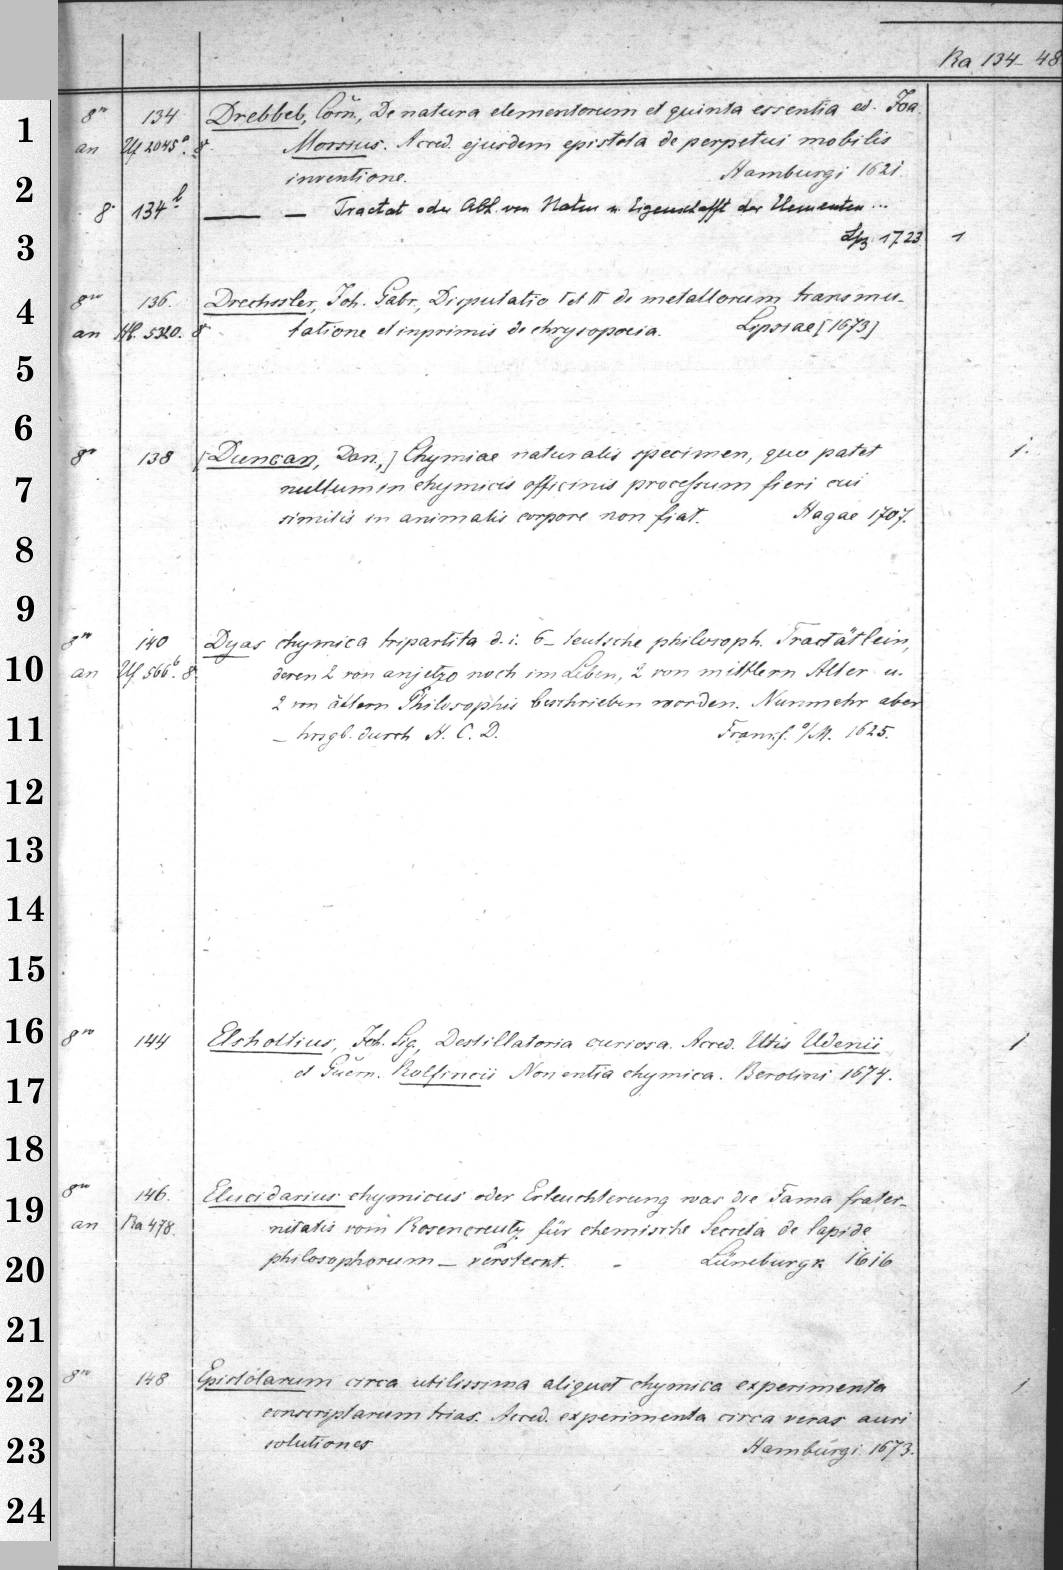 Ra 134-48
1
8° 134 Drebbel, Corn., De natura elementorum et quinta essentia ed. Joa.
an Uf 2045a. 8° Morsius. Acced. ejusdem epistola de perpetui mobilis
2
inventione. Hamburgi 1621.
8° 134b — — Tractat oder Abh. von Natur u. Eigenschafft der Elementen ...
3
Lpz. 1723 1
4
8vo 136. Drechssler, Joh. Gabr., Disputatio I et II de metallorum transmu-
an Hl. 5320. 8° tatione et inprimis de chrysopoeia. Lipsiae [1673]
5
6
8° 138 [Duncan, Dan.,] Chymiae naturalis specimen, quo patet 1.
7
nullum in chymicis officinis processum fieri cui
similis in animalis corpore non fiat. Hagae 1707.
8
9
8vo 140 Dyas chymica tripartita d. i. 6 – teutsche philosoph. Tractätlein,
10
an Uf 566b. 8° deren 2 von anjetzo noch im Leben, 2 von mittlern Alter u.
2 von ältern Philosophis beschrieben worden. Nunmehr aber
11
– hrsgb. durch H. C. D. Frankf. a/M. 1625.
12
13
14
15
16
8vo 144 Elsholtius, Joh. Sig., Destillatoria curiosa. Acced. Utis Udenii 1
17
et Guern. Rolfincii Non entia chymica. Berolini 1674.
18
19
8vo 146. Elucidarius chymicus oder Erleuchterung was die Fama frater-
an Ra 478. nitatis vom Rosencreutz für chemische Secreta de lapide
20
philosophorum – versteckt. Lüneburgk 1616
21
22
8vo 148 Epistolarum circa utilissima aliquot chymica experimenta 1
conscriptarum trias. Acced. experimenta circa veras auri
23
solutiones Hamburgi 1673.
24